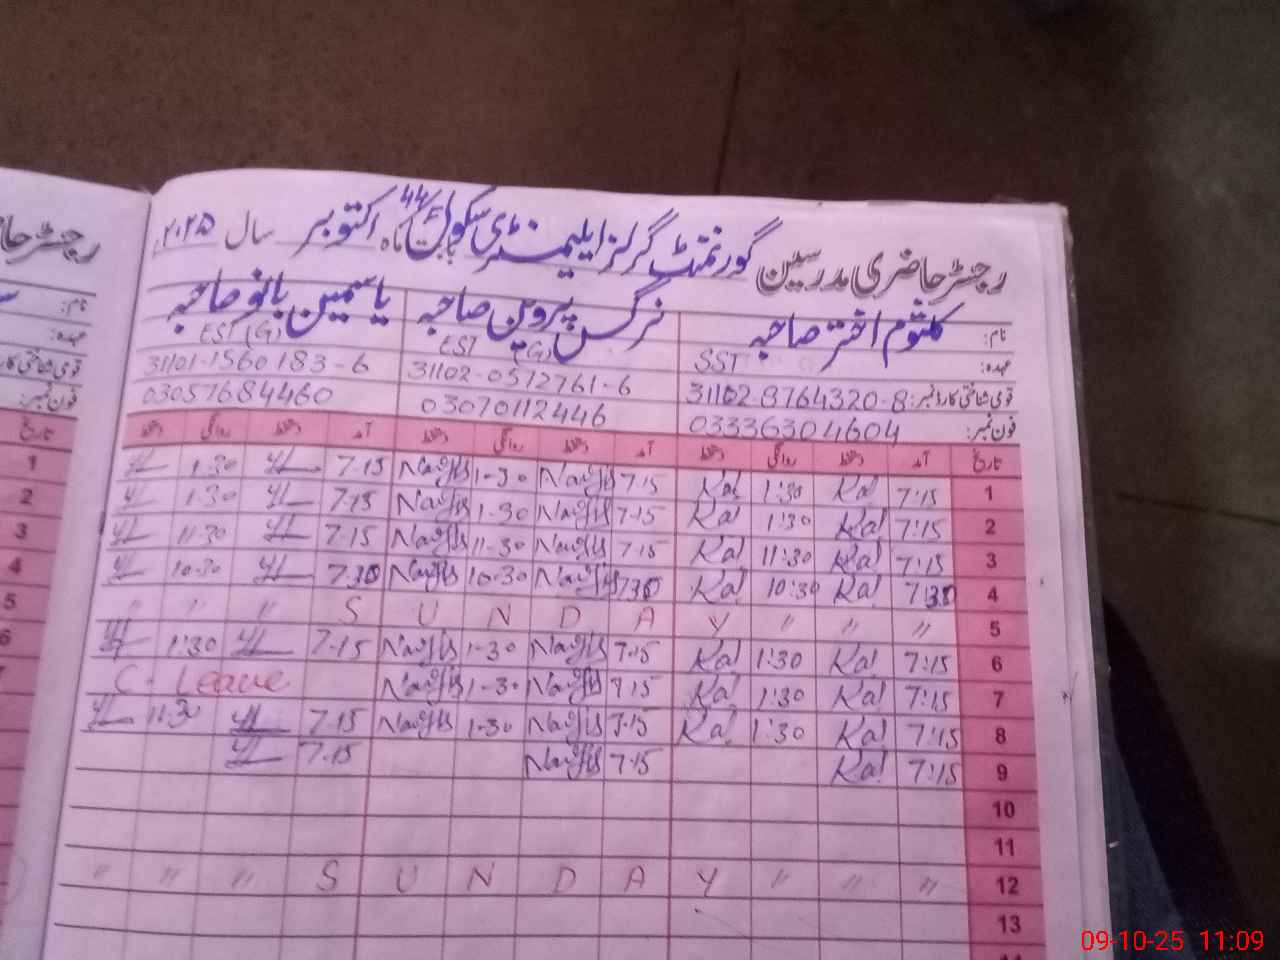 رجسٹر حاضری مدرسین گورنمنٹ گرلز ایلیمنٹری سکول 44/ ماہ اکتوبر سال ۲۰۲۵
نام: کلثوم اختر صاحبہ نرگس پروین صاحبہ یاسمین بانو صاحبہ
عہدہ: SST EST (G) EST (G)
قومی شناختی کارڈ نمبر: 31102-8764320-8 31102-0572761-6 31101-1560183-6
فون نمبر: 03336304604 03070112446 03057684460
تاریخ آمد دستخط روانگی دستخط آمد دستخط روانگی دستخط آمد دستخط روانگی دستخط
1 7:15 Kal 1:30 Kal 7-15 Nargis 1-30 Nargis 7.15 1.30
2 7:15 Kal 1:30 Kal 7-15 Nargis 1-30 Nargis 7.15 1.30
3 7:15 Kal 11:30 Kal 7-15 Nargis 11-30 Nargis 7.15 11.30
4 7:30 Kal 10:30 Kal 7.30 Nargis 10-30 Nargis 7.30 10.30
5 " " " S U N D A Y " " "
6 7:15 Kal 1:30 Kal 7-15 Nargis 1-30 Nargis 7-15 1:30
7 7:15 Kal 1:30 Kal 7-15 Nargis 1-30 Nargis C. Leave
8 7:15 Kal 1:30 Kal 7-15 Nargis 1-30 Nargis 7.15
9 7:15 Kal 7-15 Nargis 7.15
10
11
12 " " " S U N D A Y " " "
13
رجسٹر
نام:
عہدہ:
فون نمبر:
تاریخ
1
2
3
4
5
6
09-10-25 11:09